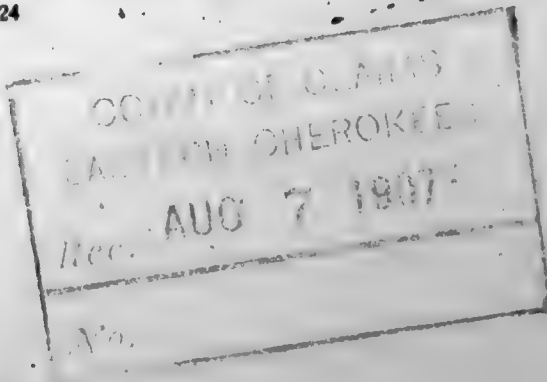 24
COURT OF CLAIMS
EASTERN CHEROKEE
Rec. AUG 7 1907
No.